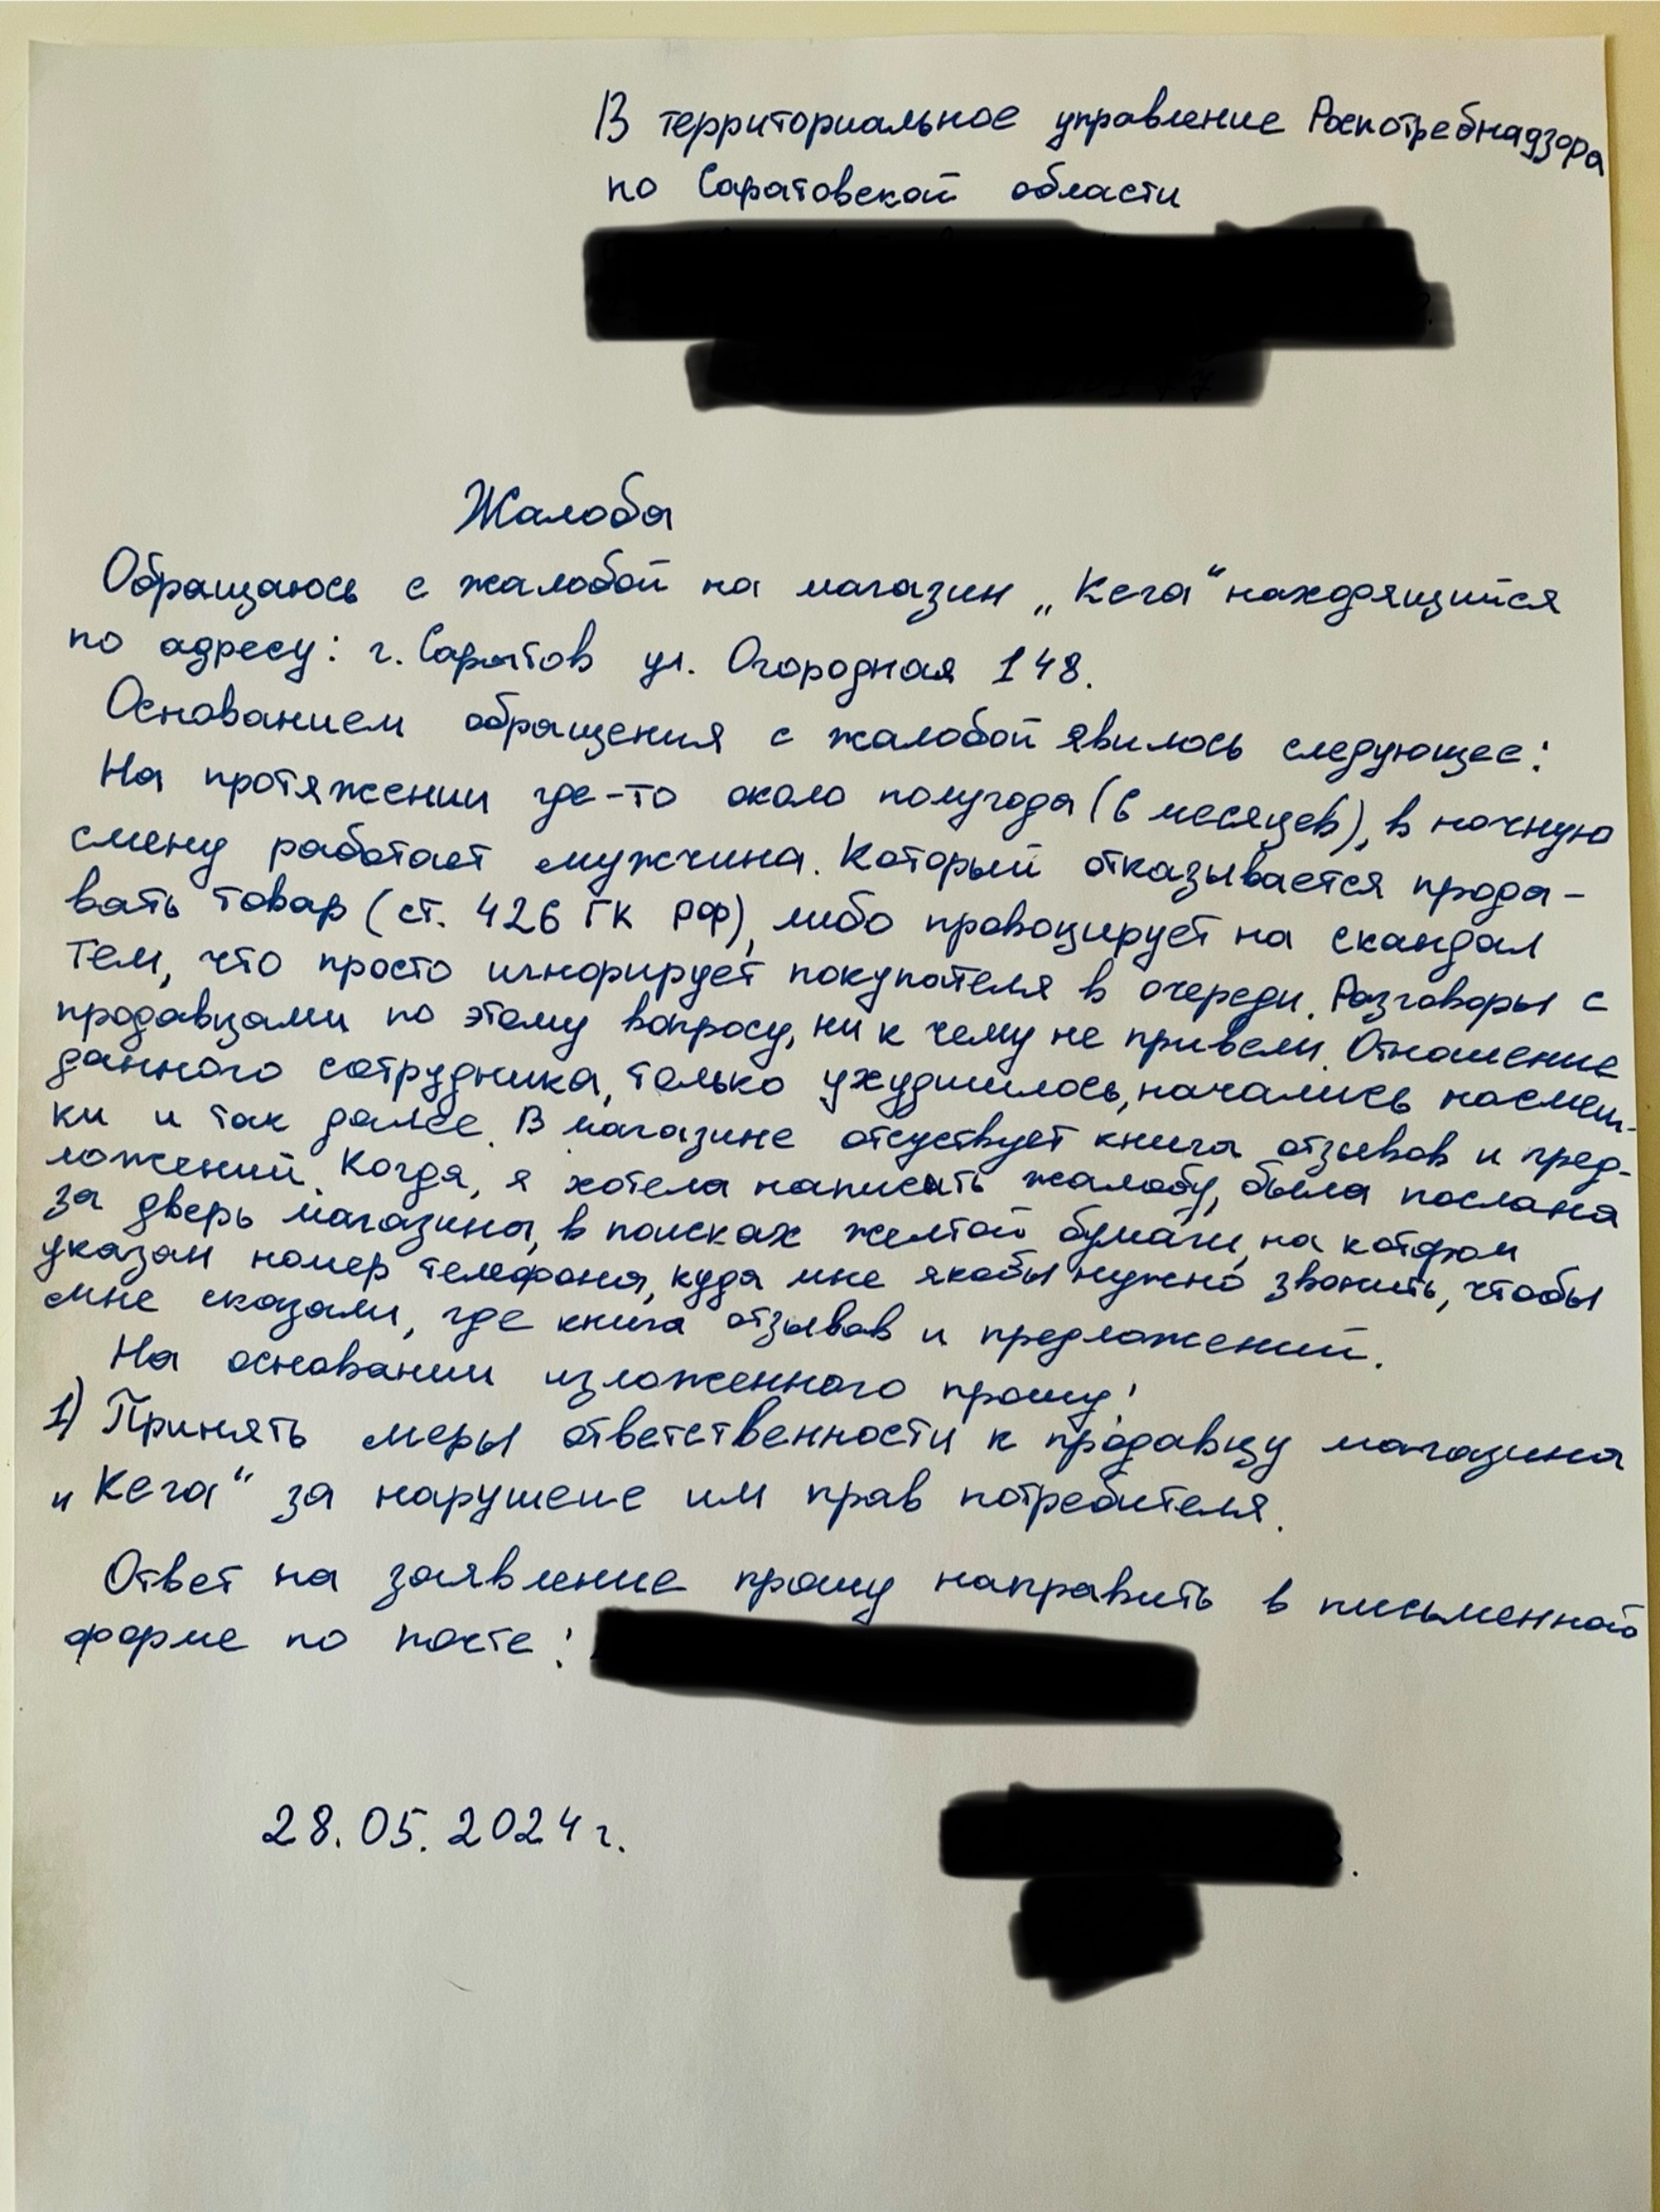 В территориальное управление Роспотребнадзора
по Саратовской области
Жалоба
Обращаюсь с жалобой на магазин „Кега“ находящийся
по адресу: г. Саратов ул. Огородная 148.
Основанием обращения с жалобой явилось следующее:
На протяжении где-то около полугода (6 месяцев), в ночную
смену работает мужчина. Который отказывается прода-
вать товар (ст. 426 ГК РФ), либо провоцирует на скандал
тем, что просто игнорирует покупателя в очереди. Разговоры с
продавцами по этому вопросу, ни к чему не привели. Отношение
данного сотрудника, только ухудшилось, начались насмеш-
ки и так далее. В магазине отсуствует книга отзывов и пред-
ложений. Когда, я хотела написать жалобу, была послана
за дверь магазина, в поисках желтой бумаги, на котором
указан номер телефона, куда мне якобы нужно звонить, чтобы
мне сказали, где книга отзывов и предложений.
На основании изложенного прошу:
1) Принять меры ответственности к продавцу магазина
„Кега“ за нарушене им прав потребителя.
Ответ на заявление прошу направить в письменной
форме по почте:
28.05.2024 г.